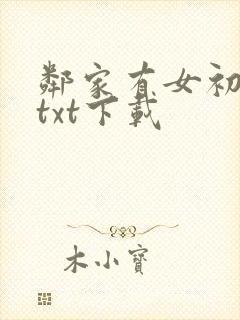 鄰家有女初
txt下載
木小寶